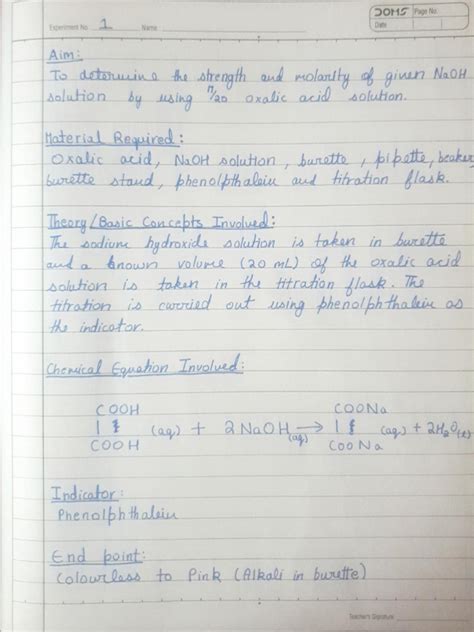 DOMS Page No.
Date
Experiment No. 1 Name
Aim:
To determine the strength and molarity of given NaOH
solution by using N/20 oxalic acid solution.
Material Required:
Oxalic acid, NaOH solution, burette, pipette, beaker,
burette stand, phenolphthalein and titration flask.
Theory/Basic Concepts Involved:
The sodium hydroxide solution is taken in burette
and a known volume (20 mL) of the oxalic acid
solution is taken in the titration flask. The
titration is carried out using phenolphthalein as
the indicator.
Chemical Equation Involved:
COOH COONa
| (aq) + 2NaOH(aq) → | (aq) + 2H2O(l)
COOH COONa
Indicator:
Phenolphthalein
End point:
Colourless to Pink (Alkali in burette)
Teacher's Signature